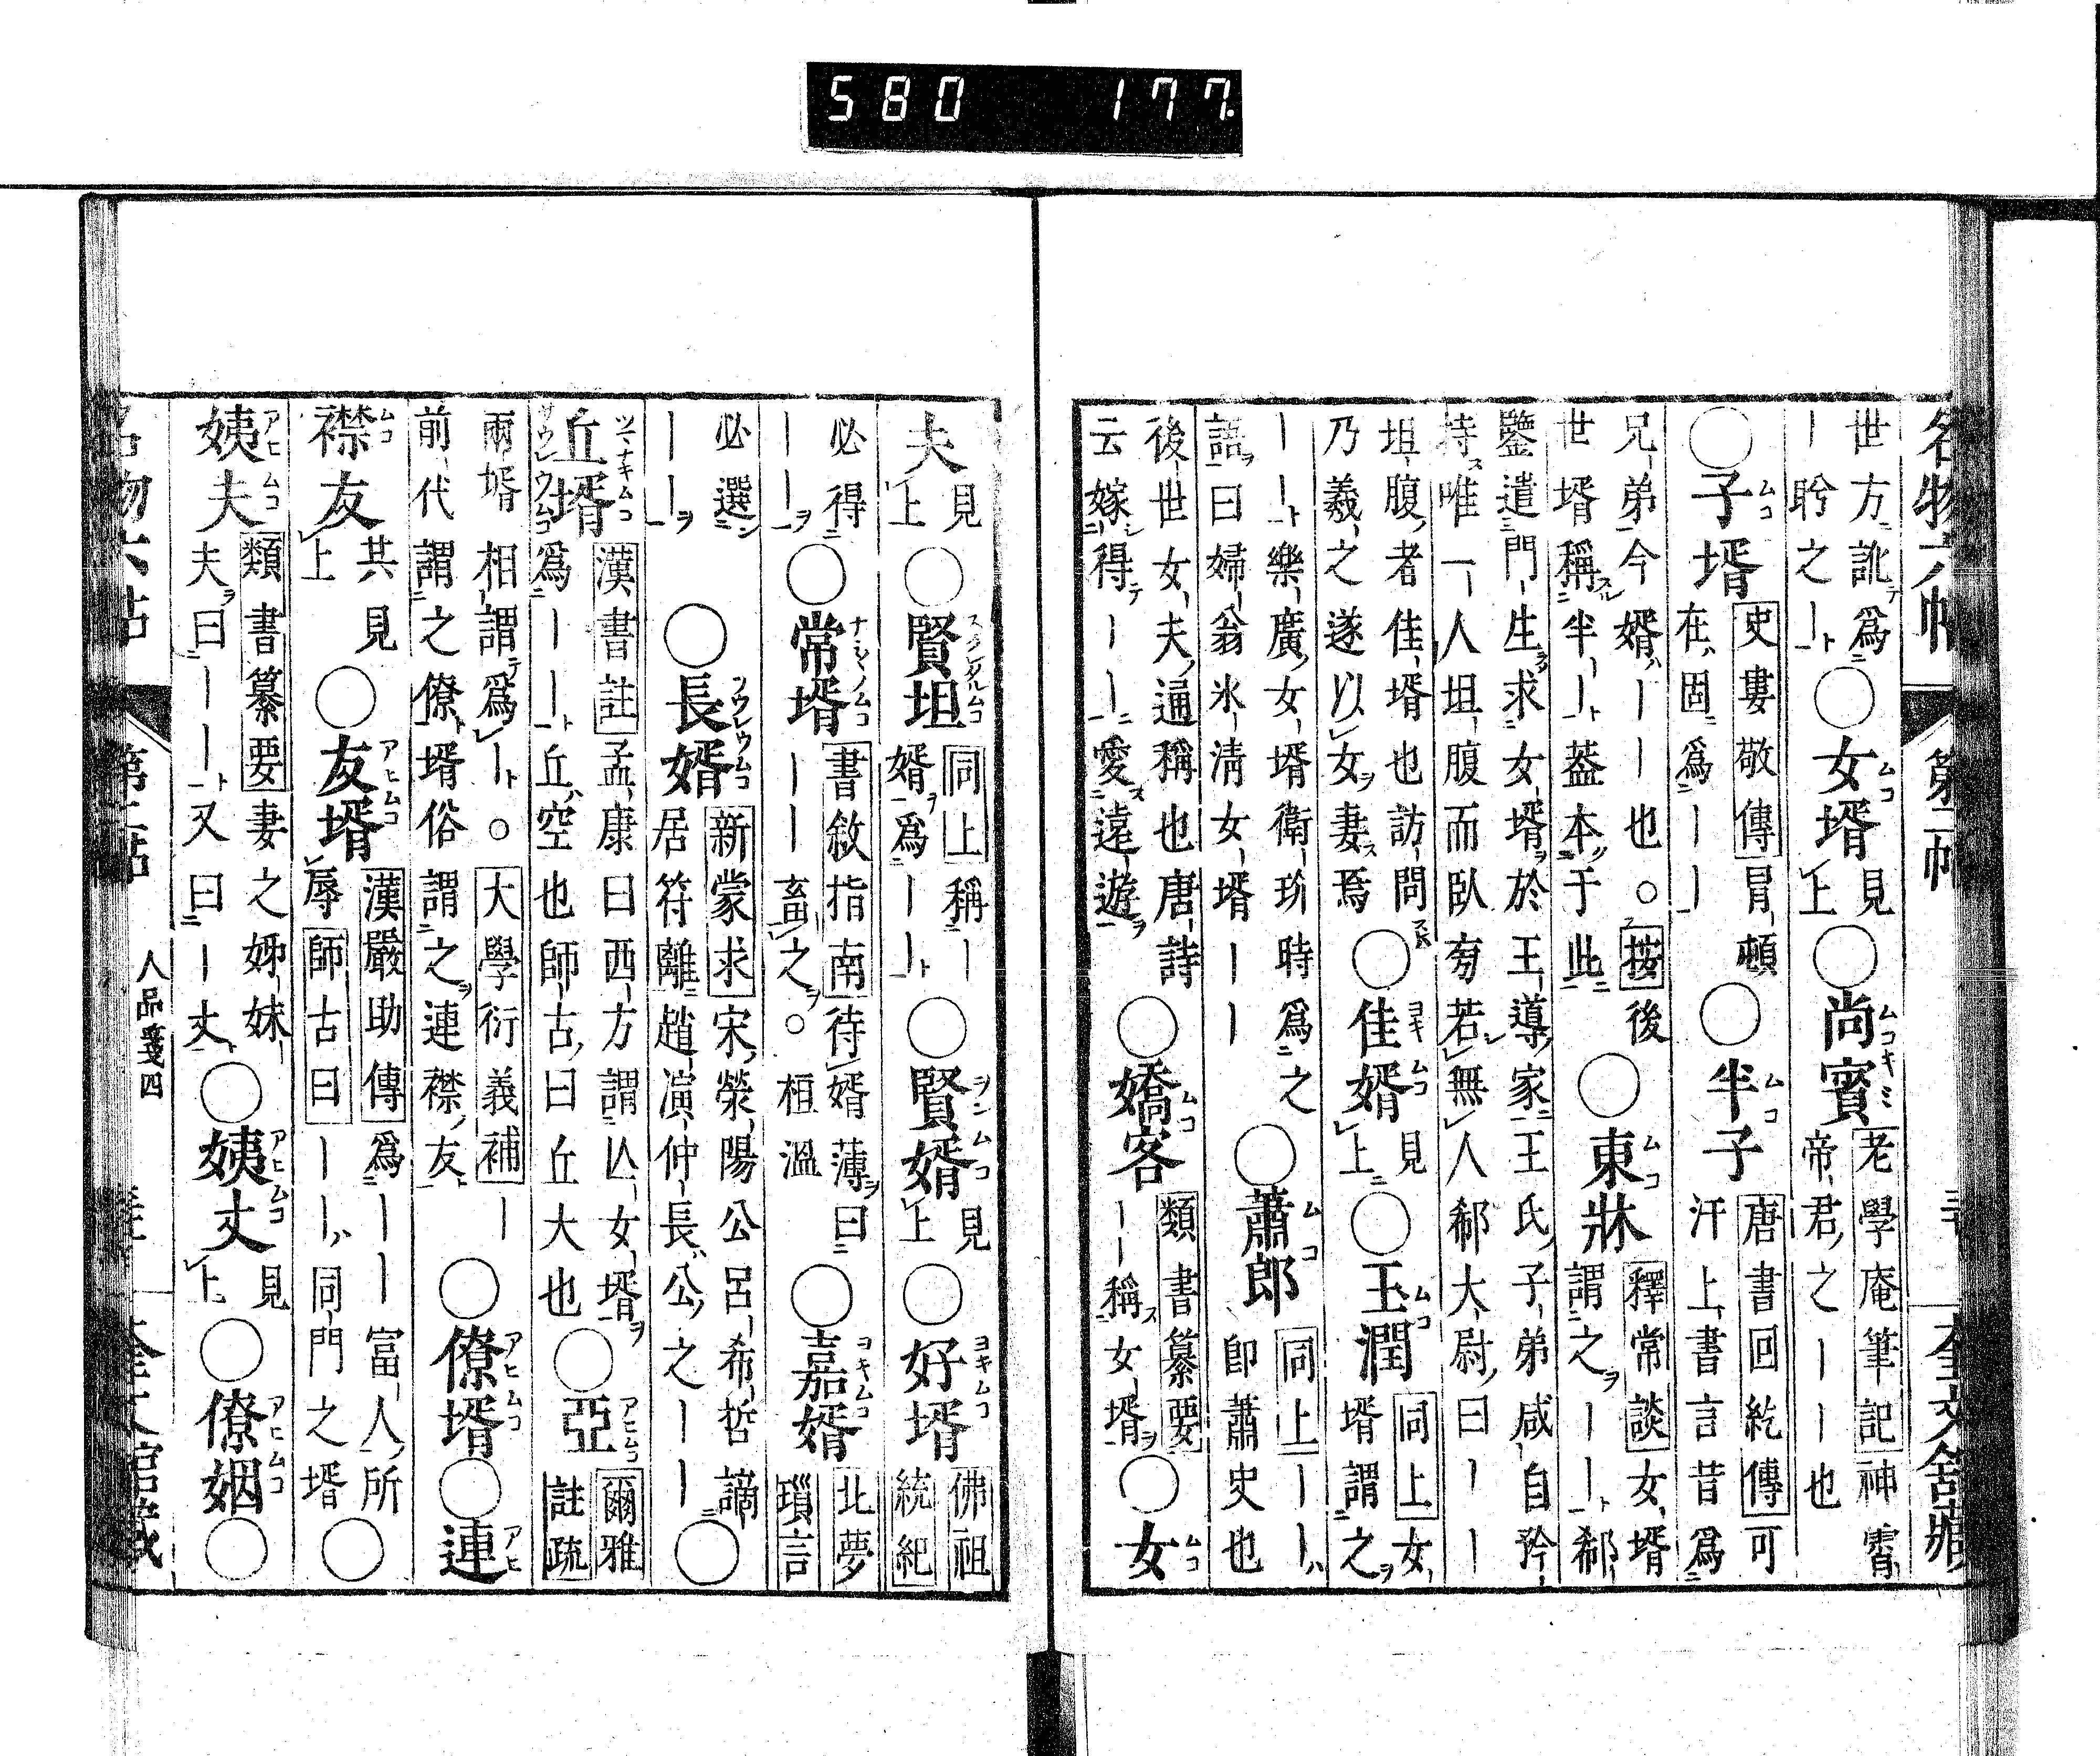 580 177
名物六帖 第二帖 奎文舘藏
世方訛爲〡聆之〡 ○女壻 見上 ○尚賓 老學庵筆記 神霄帝君之〡〡也
○子壻 史婁敬傳 冒頓在固爲〡〡 ○半子 唐書回紇傳 可汗上書言昔爲
兄弟今婿〡〡也○按後世壻稱半〡蓋本于此 ○東牀 釋常談 女壻謂之〡〡郗
鑒遣門生求女壻於王導家王氏子弟咸自矜持唯一人坦腹而臥旁若無人郗大尉曰〡〡
坦腹者佳壻也訪問乃羲之遂以女妻焉 ○佳婿 見上 ○玉潤 同上 女壻謂之
〡〡樂廣女壻衛玠時爲之語曰婦翁氷清女壻〡〡 ○蕭郎 同上 〡〡即蕭史也
後世女夫通稱也唐詩云嫁得〡〡愛遠遊 ○嬌客 類書纂要 〡〡稱女壻 ○女
夫 見上 ○賢坦 同上 稱〡婿爲〡〡 ○賢婿 見上 ○好壻 佛祖統紀
必得〡〡 ○常壻 書敘指南 待婿薄曰〡〡畜之○桓溫 ○嘉婿 北夢瑣言
必選〡〡 ○長婿 新蒙求 宋滎陽公呂希哲謫居符離趙演仲長公之〡〡 ○
丘壻 漢書註 孟康曰西方謂亾女壻爲〡〡丘空也師古曰丘大也 ○亞 爾雅註疏
兩壻相謂爲〡○大學衍義補 〡前代謂之僚壻俗謂之連襟友 ○僚壻 ○連
襟友 共見上 ○友壻 漢嚴助傳 爲〡〡富人所辱師古曰〡〡同門之壻 ○
姨夫 類書纂要 妻之姊妹夫曰〡〡又曰〡丈 ○姨丈 見上 ○僚姻 ○
人品箋四